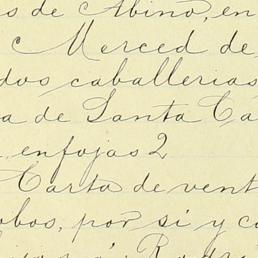 s de Abino, en
Merced de
dos caballerias
a de Santa Ca
enfojas 2
Carta de vent
obos, por si y c